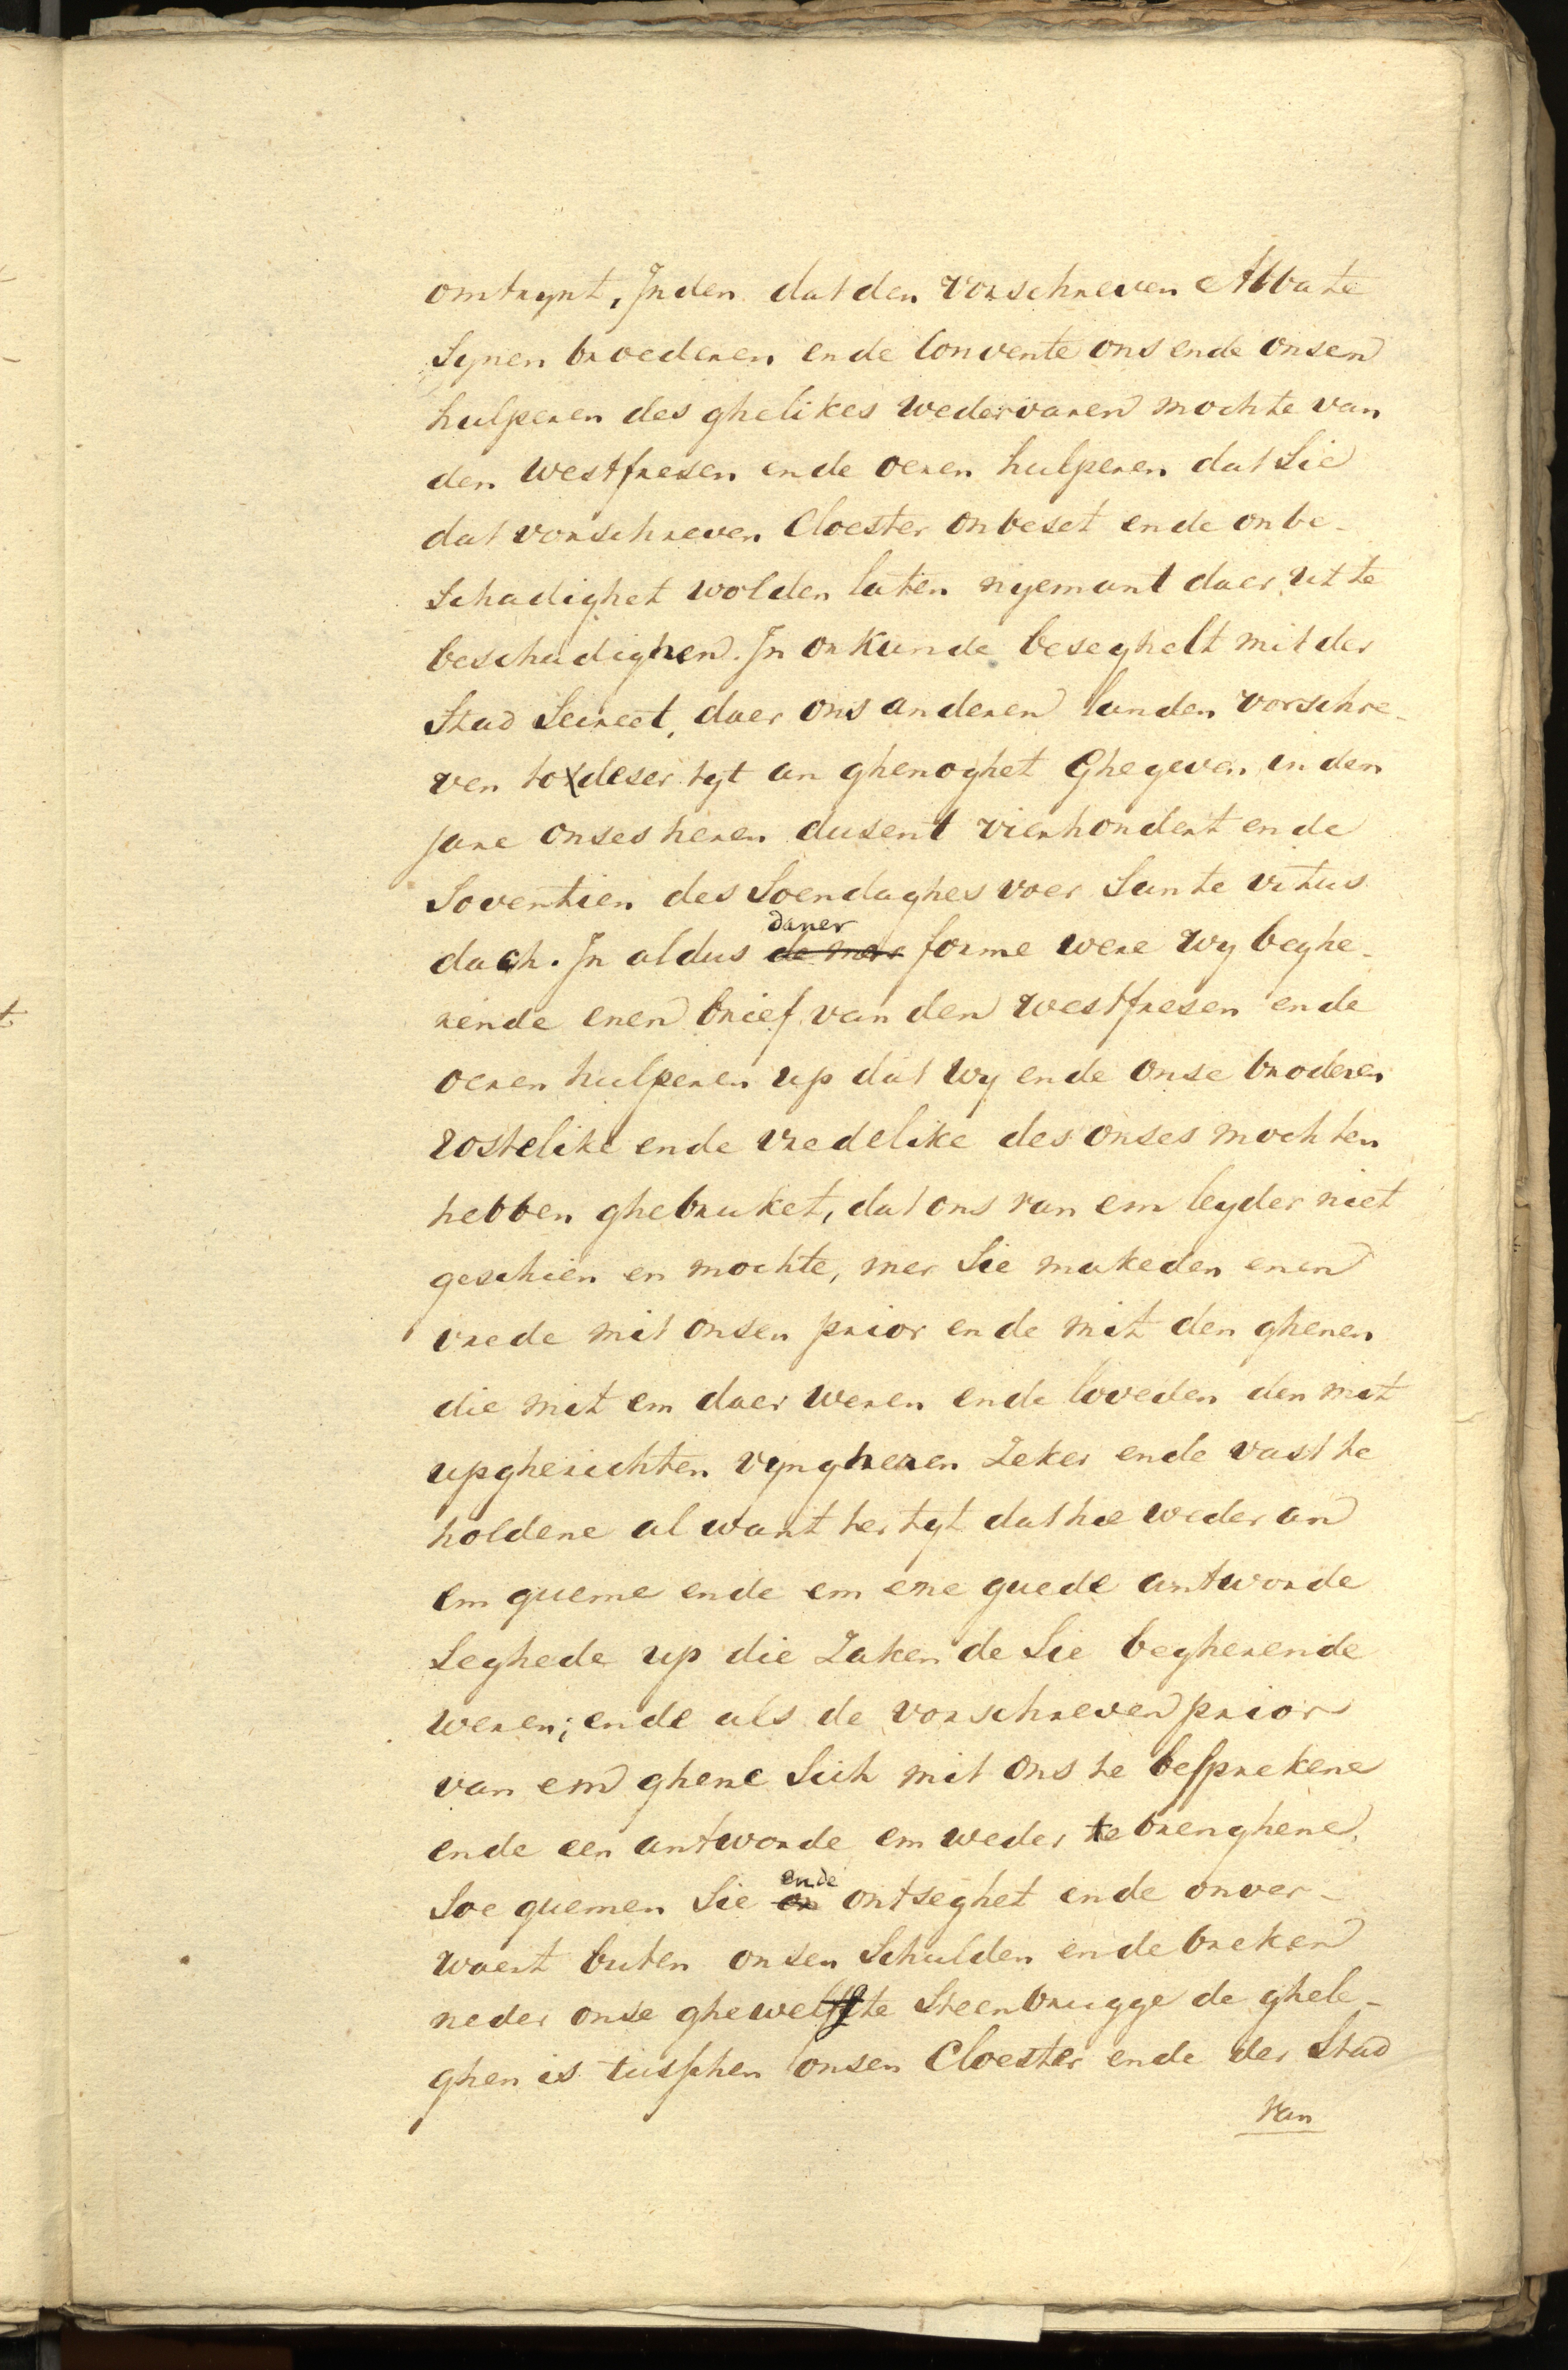 omtrynt, Jnden dat den vorschreven Abbate
Synen broederen ende Convente ons ende onsen
hulperen des ghelikes wedervaren mochte van
den westfresen ende oeren hulperen dat Sie
dat vorschreven Cloester onbeset ende onbe-
Schadighet wolden laten nyemant daer ut te
beschadighen. Jn orkunde beseghelt mit der
Stad Secreet, daer ons anderen landen vorschre-
ven to deser tyt an ghenoghet Ghegeven in den
jare onses heren dusent vierhondert ende
Soventien des Soendaghes voer Sunte vitus
daner
dach. Jn aldus de mere forme were wy beghe-
rende enen brief van den westfresen ende
oeren hulperen up dat wy ende onse broderen
rostelike ende vredelike des onses mochten
hebben ghebruket, dat ons van em leyder niet
geschien en mochte, mer Sie makeden enen
vrede mit onsen prior ende mit den ghenen
die mit em daer weren ende loveden den mit
upgherichten vyngheren Zeker ende vast te
holdene al want ter tyt dat hie weder an
em queme ende em ene guede antworde
Seghede up die Zaken de Sie begherende
weren; ende als de vorschreven prior
van em ghene Sich mit ons te besprekene
ende een antworde em weder te brenghene,
ende
Soe quemen Sie on ontseghet ende onver-
waert buten onsen Schulden ende breken
neder onse ghewelffte Steenbrugge de ghele-
ghen is tusschen onsen Cloester ende der Stad
van